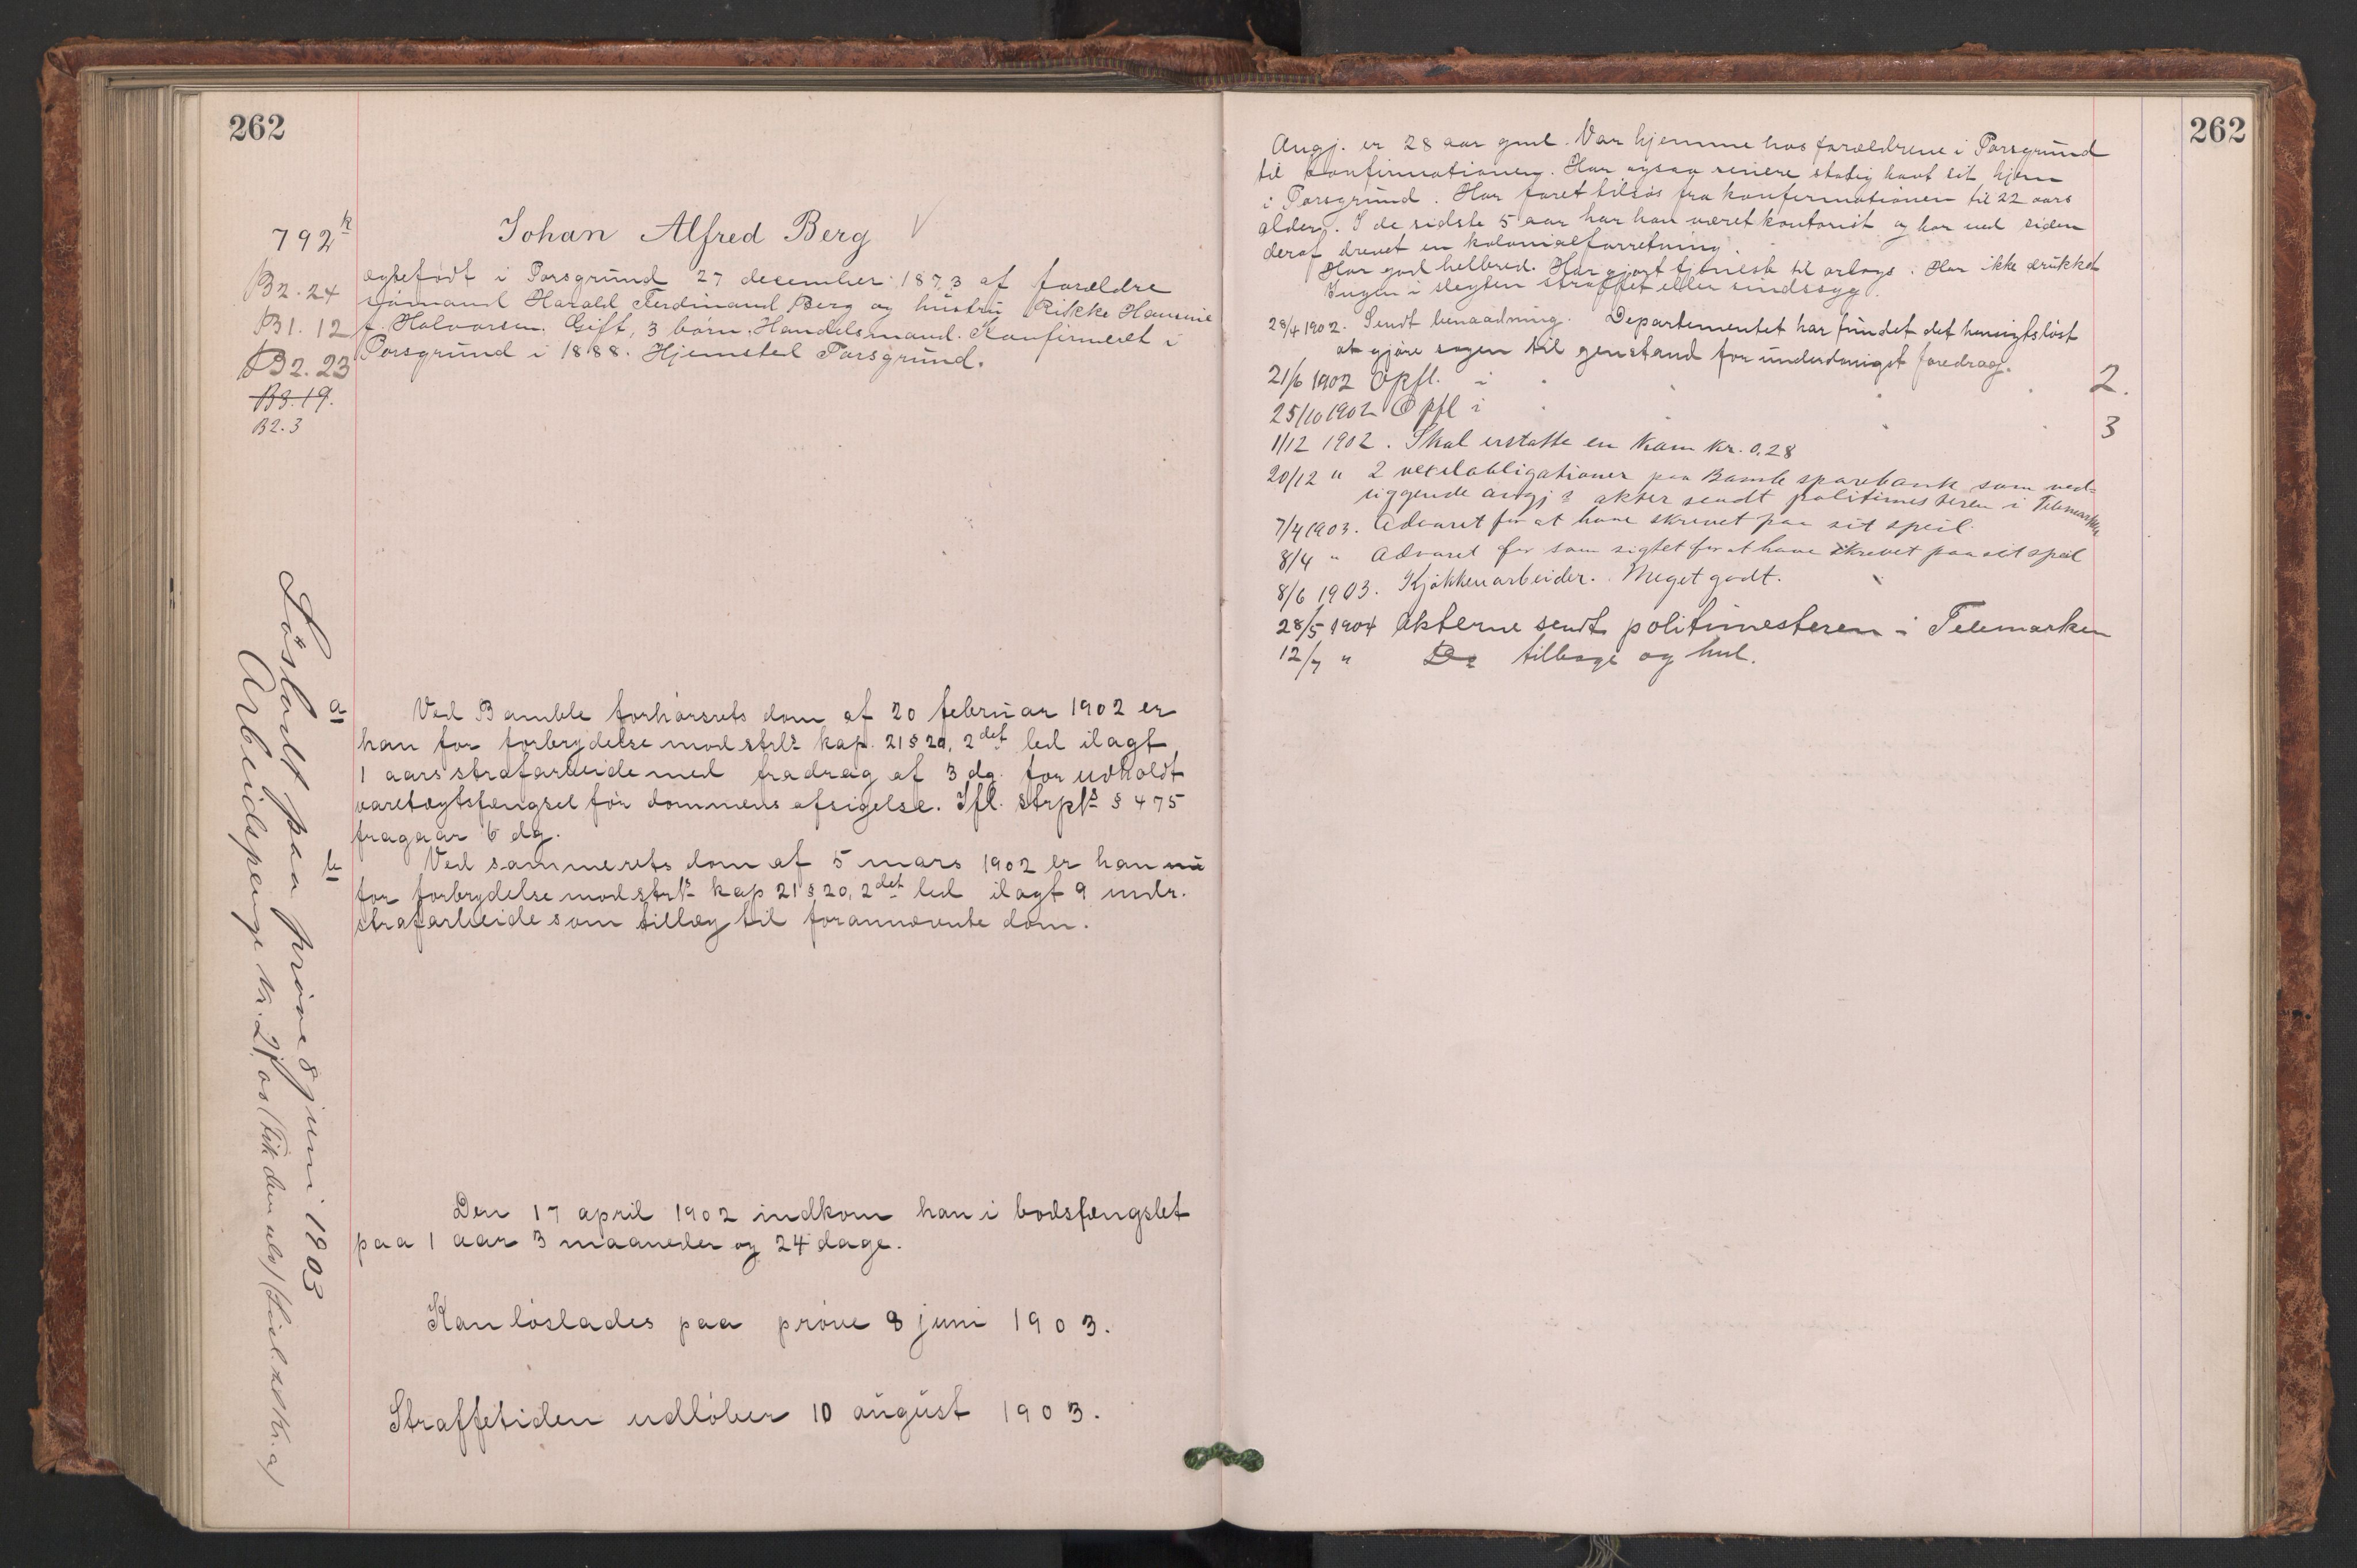 262
792 k
Johan Alfred Berg
B2.24
B1.12
B2.23
B3.19.
B2.3
ægtefødt i Porsgrund 27 december 1873 af forældre
sømand Harald Ferdinand Berg og hustru Rikke Hansine
f. Halvorsen. Gift, 3 børn. Handelsmand. Konfirmeret i
Porsgrund i 1888. Hjemsted Porsgrund.
a
Ved Bamble forhørsrets dom af 20 februar 1902 er
han for forbrydelse mod strls kap. 21 § 20, 2det led ilagt
1 aars strafarbeide med fradrag af 3 dg. for udholdt
varetægtsfængsel før dommens afsigelse. Ifl. strpls § 475
fragaar 6 dg.
b
Ved sammerets dom af 5 mars 1902 er han nu
for forbrydelse mod strls kap 21 § 20, 2det led ilagt 9 mdr.
strafarbeide som tillæg til forannævnte dom.
Den 17 april 1902 indkom han i bodsfængslet
paa 1 aar 3 maaneder og 24 dage.
Kan løslades paa prøve 8 juni 1903.
Straffetiden udløber 10 august 1903.
Løsladt paa prøve 8 juni 1903
Arbeidspenge kr. (Fik den
262
Angj. er 28 aar gml. Var hjemme hos forældrene i Porsgrund
til konfirmationen. Har ogsaa senere stadig havt sit hjem
i Porsgrund. Har faret tilsøs fra konfirmationen til 22 aars
alder. I de sidste 5 aar har han været kontorist og har ved siden
deraf drevet en kolonialforretning.
Har god helbred. Har gjort tjeneste til orlogs. Har ikke drukket
Ingen i slegten straffet eller sindssyg.
28/4 1902. Sendt benaadning. Departementet har fundet det hensigtsløst
at gjøre sagen til genstand for underdanigst foredrag.
21/6 1902 Opfl. i 2.
25/10 1902 Opfl i 3
1/12 1902. Skal erstatte en kam kr. 0.28
20/12 " 2 vexelobligationer paa Bamle sparebank som ved-
liggende angjs akter sendt politimesteren i Telemarken
7/4 1903. Advaret for at have skrevet paa sit speil.
8/4 " Advaret for som sigtet for at have skrevet paa sit speil
8/6 1903. Kjøkkenarbeider. Meget godt.
28/5 1904 Akterne sendt politimesteren i Telemarken
12/7 " Do tilbage og hnl.